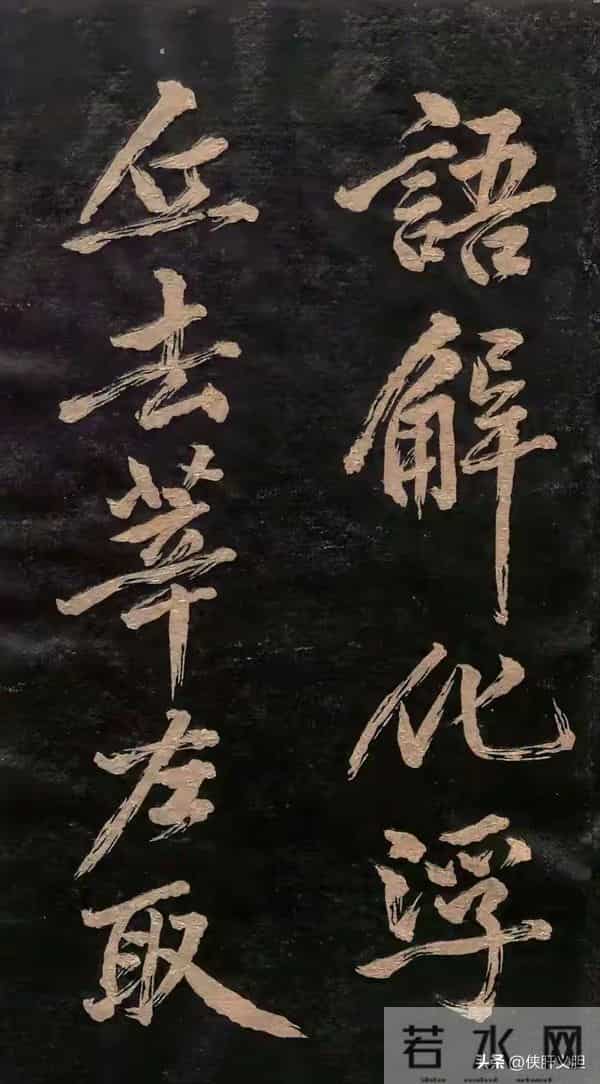 語解化浮
丘去莘左取
若水网
头条 @侠肝义胆